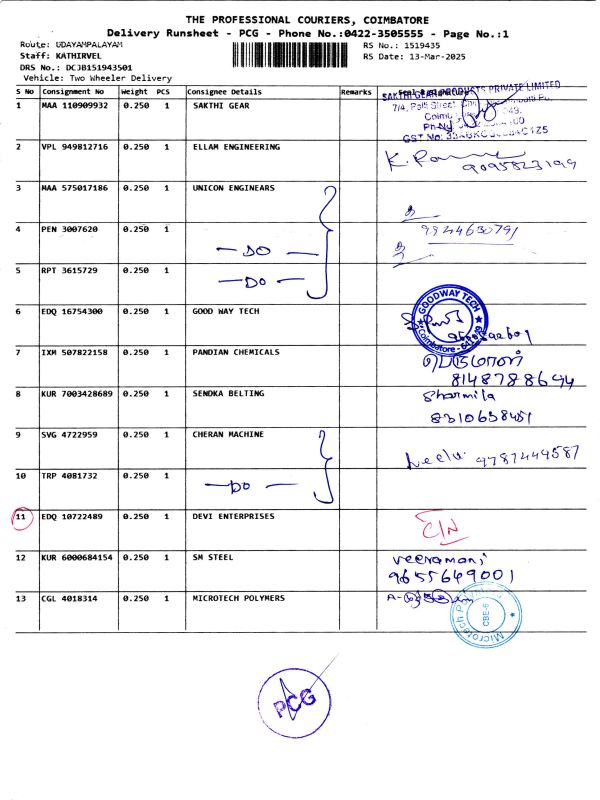 THE PROFESSIONAL COURIERS, COIMBATORE
Delivery Runsheet - PCG - Phone No.:0422-3505555 - Page No.:1
Route: UDAYAMPALAYAM
RS No.: 1519435
Staff: KATHIRVEL
RS Date: 13-Mar-2025
DRS No.: DCJB151943501
Vehicle: Two Wheeler Delivery
S No Consignment No Weight PCS Consignee Details Remarks
1 MAA 110909932 0.250 1 SAKTHI GEAR
SAKTHI GEAR PRODUCTS PRIVATE LIMITED
7/4,
GST No:
2 VPL 949812716 0.250 1 ELLAM ENGINEERING
9095823199
3 MAA 575017186 0.250 1 UNICON ENGINEARS
4 PEN 3007620 0.250 1 - DO -
9244630791
5 RPT 3615729 0.250 1 - DO -
6 EDQ 16754300 0.250 1 GOOD WAY TECH
GOODWAY TECH
7 IXM 507822158 0.250 1 PANDIAN CHEMICALS
பெருமாள்
8148788694
8 KUR 7003428689 0.250 1 SENDKA BELTING
Sharmila
8310638451
9 SVG 4722959 0.250 1 CHERAN MACHINE
Neelu 9787449587
10 TRP 4081732 0.250 1 - DO -
11 EDQ 10722489 0.250 1 DEVI ENTERPRISES
C/N
12 KUR 6000684154 0.250 1 SM STEEL
veeramani
9655649001
13 CGL 4018314 0.250 1 MICROTECH POLYMERS
CBE-6
PCG